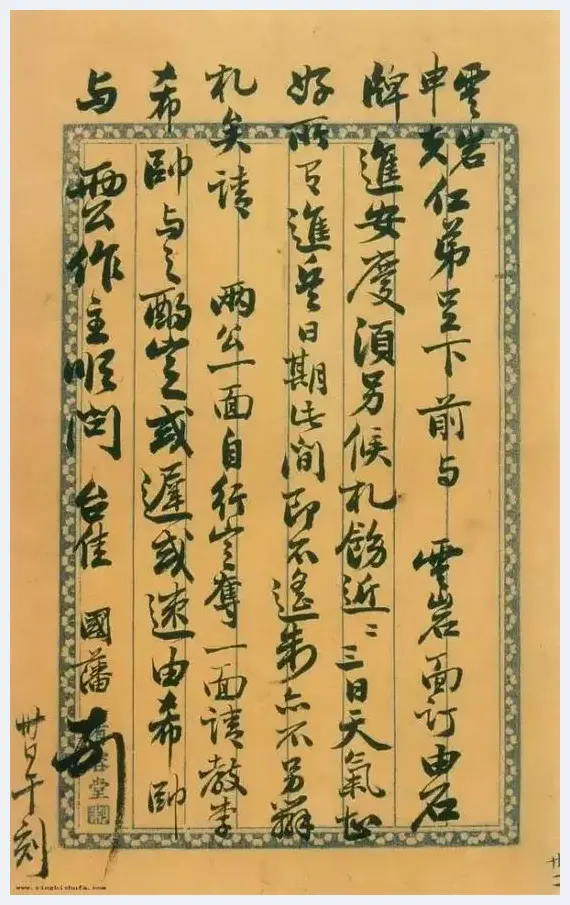 雲岩
申夫仁弟足下前与 雲岩面訂由石
牌進安慶須另候札飭近二三日天氣極
好所有進兵日期此間即不遙制亦不另辦
札矣請 兩公一面自行定奪一面請教李
希帥与之酌定或遲或速由希帥
与 兩公作主順問 台佳 國藩
廿日午刻
www.yingbishufa.com